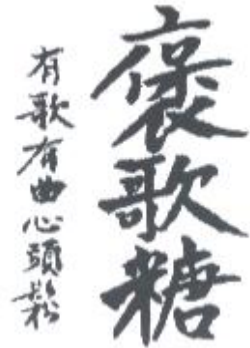 褒歌糖
有歌有曲心頭鬆